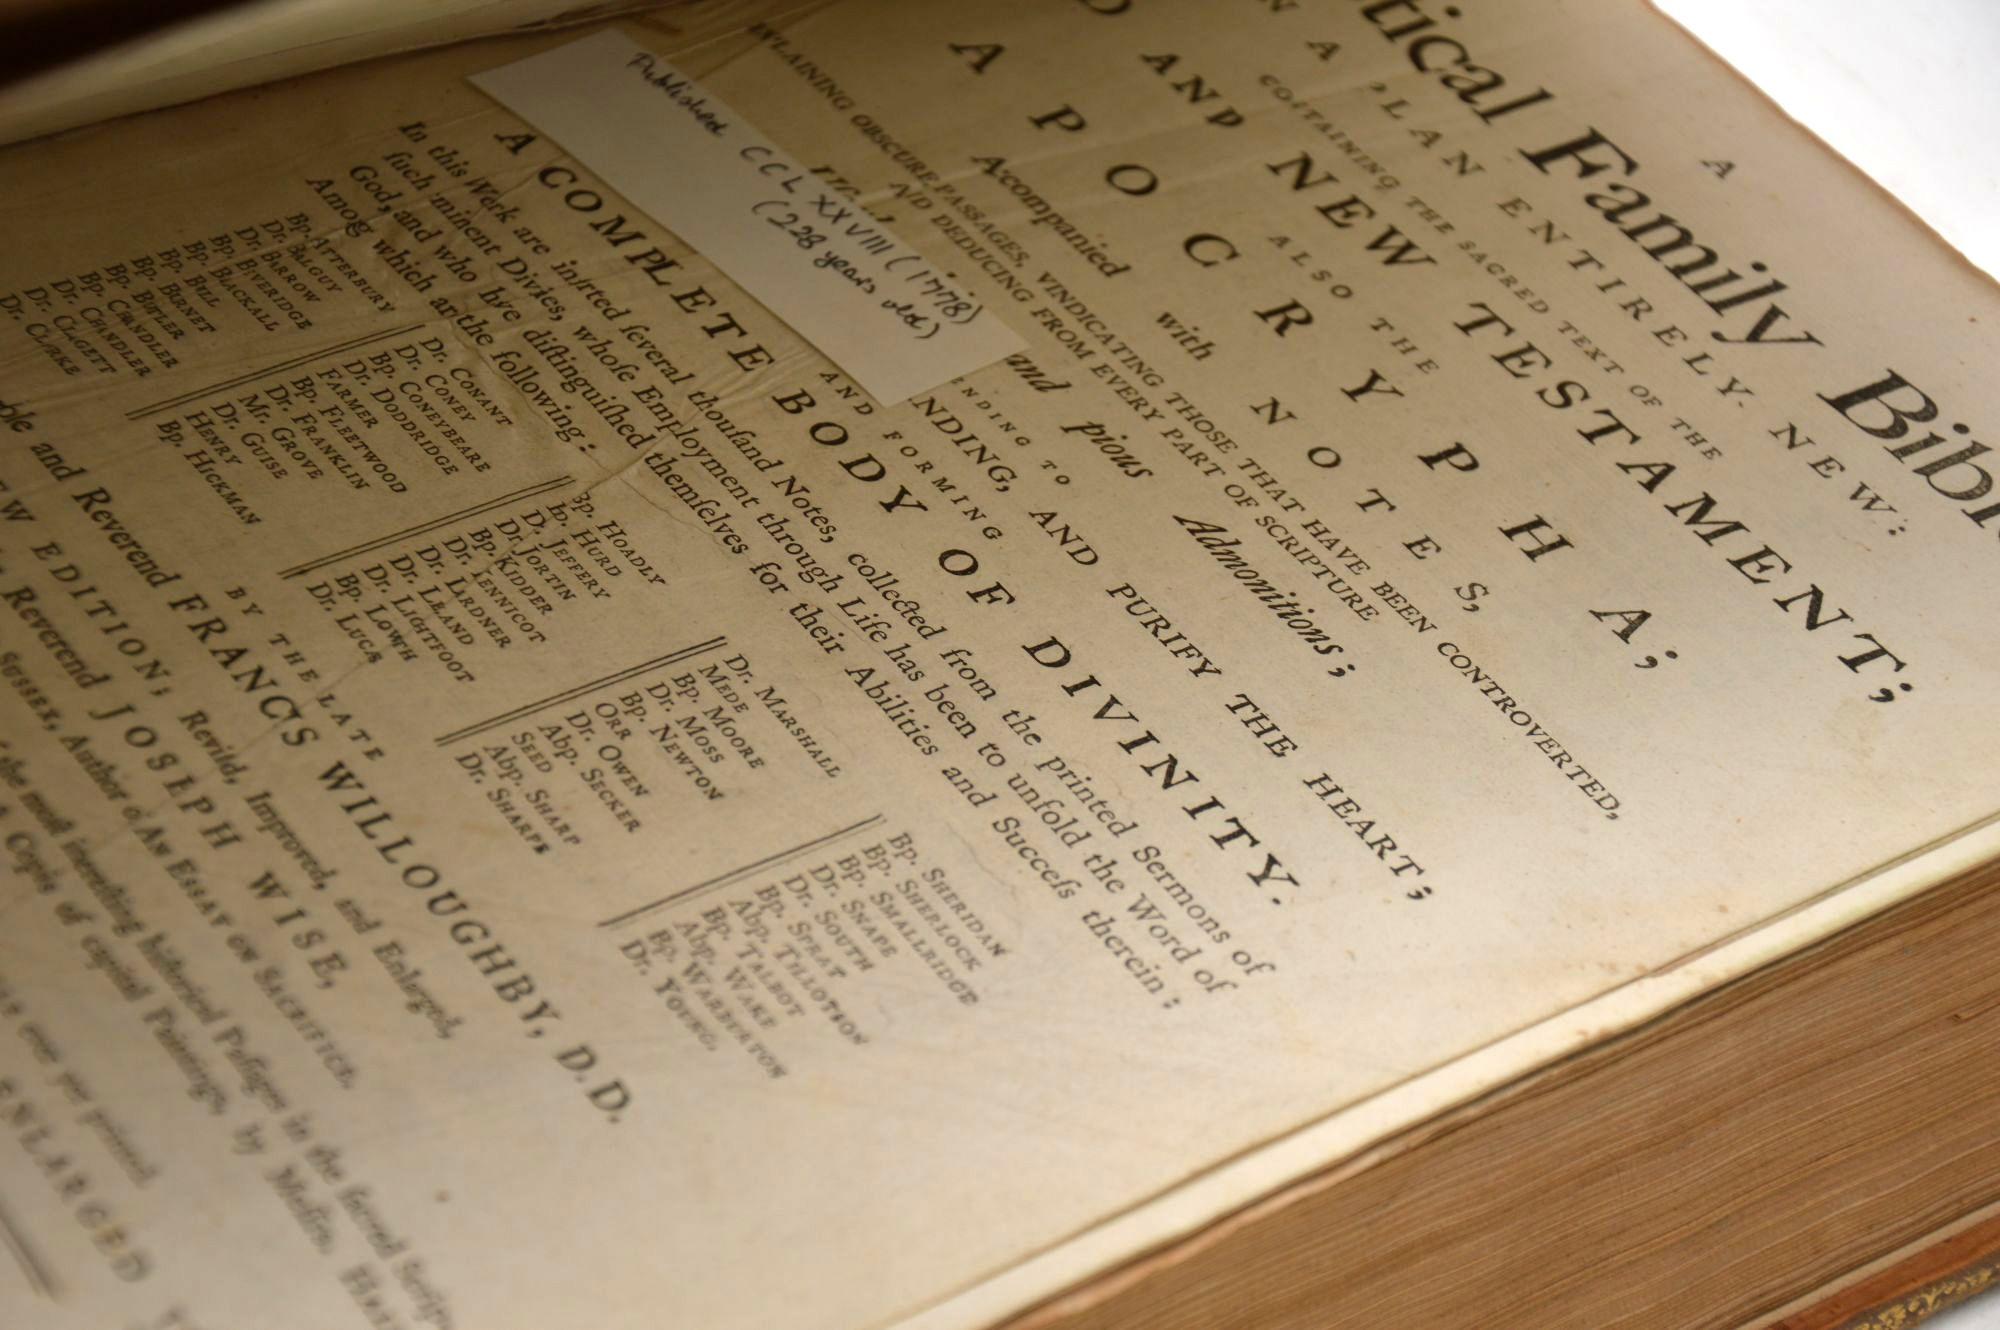 A
tical Family Bibl
N A PLAN ENTIRELY NEW:
CONTAINING THE SACRED TEXT OF THE
D AND NEW TESTAMENT;
ALSO THE
APOCRYPHA;
Accompanied with NOTES,
EXPLAINING OBSCURE PASSAGES, VINDICATING THOSE THAT HAVE BEEN CONTROVERTED,
AND DEDUCING FROM EVERY PART OF SCRIPTURE
and pious Admonitions;
ENDING TO
NDING, AND PURIFY THE HEART;
AND FORMING
Published CCLXXVIII (1778)
(228 years old)
A COMPLETE BODY OF DIVINITY.
In this Work are inſerted ſeveral thouſand Notes, collected from the printed Sermons of
ſuch eminent Divines, whoſe Employment through Life has been to unfold the Word of
God, and who have diſtinguiſhed themſelves for their Abilities and Succeſs therein;
Among which are the following:
Bp. ATTERBURY
Dr. BALGUY
Dr. BARROW
Bp. BIVERIDGE
Bp. BLACKALL
Bp. BULL
Bp. BURNET
Bp. BUTLER
Bp. CHANDLER
Dr. CHANDLER
Dr. CLAGETT
Dr. CLARKE
Dr. CONANT
Dr. CONEY
Bp. CONEYBEARE
Dr. DODDRIDGE
FARMER
Bp. FLEETWOOD
Dr. FRANKLIN
Mr. GROVE
Dr. GUISE
HENRY
Bp. HICKMAN
Bp. HOADLY
Bp. HURD
Dr. JEFFERY
Dr. JORTIN
Bp. KIDDER
Dr. KENNICOT
Dr. LARDNER
Dr. LELAND
Dr. LIGHTFOOT
Bp. LOWTH
Dr. LUCAS
Dr. MARSHALL
MEDE
Bp. MOORE
Dr. MOSS
Bp. NEWTON
ORR
Dr. OWEN
Abp. SECKER
SEED
Abp. SHARP
Dr. SHARPE
Bp. SHERIDAN
Bp. SHERLOCK
Bp. SMALLRIDGE
Dr. SNAPE
Dr. SOUTH
Bp. SPRAT
Abp. TILLOTSON
Bp. TALBOT
Abp. WAKE
Bp. WARBURTON
Dr. YOUNG.
BY THE LATE
and Reverend FRANCIS WILLOUGHBY, D.D.
EW EDITION; Reviſed, Improved, and Enlarged,
Reverend JOSEPH WISE,
SUSSEX, Author of AN ESSAY ON SACRIFICE.
the moſt intereſting hiſtorical Paſſages in the ſacred
Copies of capital Paintings, by
ever yet printed
ENLARGED